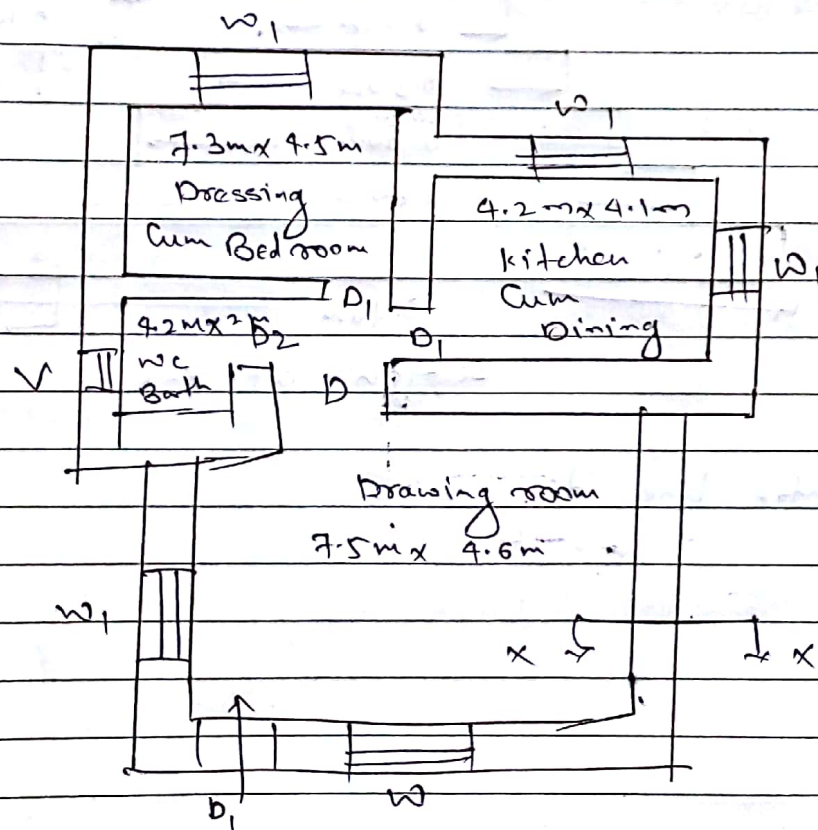 W.1
W1
7.3m x 4.5m
Dressing
Cum Bedroom
4.2m x 4.1m
Kitchen
Cum
Dining
W1
D1
4.2m x 2m
D2
WC
Bath
D1
V
D
Drawing room
7.5m x 4.6m
W1
X
X
D1
W